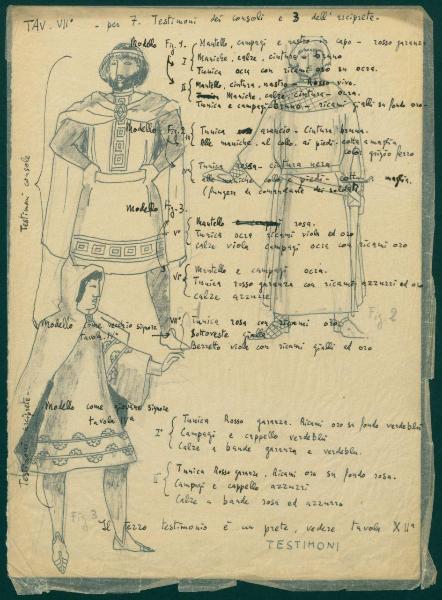 TAV. VIIª - per 7. Testimoni dei consoli e 3 dell'arciprete.
Modello Fig. 1.
I Mantello, campagi e nastro in capo - rosso garanza
Maniche, calze, cintura - bruno
Tunica ocra con ricami oro su ocra.
II Mantello, cintura, nastro - Rosso vivo.
Maniche, calze, cintura - ocra.
Tunica e campagi bruno - ricami gialli su fondo oro
Modello Fig. 2
Tunica arancio - Cintura bruna.
Alle maniche, al collo, ai piedi, cotta a maglia
color grigio ferro
Tunica rossa - cintura nera
alle maniche collo e piedi - cotta maglia.
(fungere da comandante dei soldati)
Modello Fig. 3.
Vº Mantello rosa.
Tunica ocra ricami viola ed oro
Calze viola campagi ocra con ricami oro
VIº Mantello e campagi ocra.
Tunica rosso garanza con ricami azzurri ed oro
Calze azzurre
Modello come vecchio signore
tavola IVª
VIIº Tunica rosa con ricami oro
Sottoveste gialla
Berretto viola con ricami gialli ed oro
Fig. 2
Testimoni console
Modello come giovane signore
tavola
Iº Tunica Rosso garanza. Ricami oro su fondo verdeblù
Campagi e cappello verdeblù
Calze a bande garanza e verdeblu.
II Tunica Rosso garanza. Ricami oro su fondo rosa.
Campagi e cappello azzurri
Calze a bande rosa ed azzurro
Testimoni arciprete -
Fig. 3
Il terzo testimonio è un prete, vedere tavola XIIª
TESTIMONI